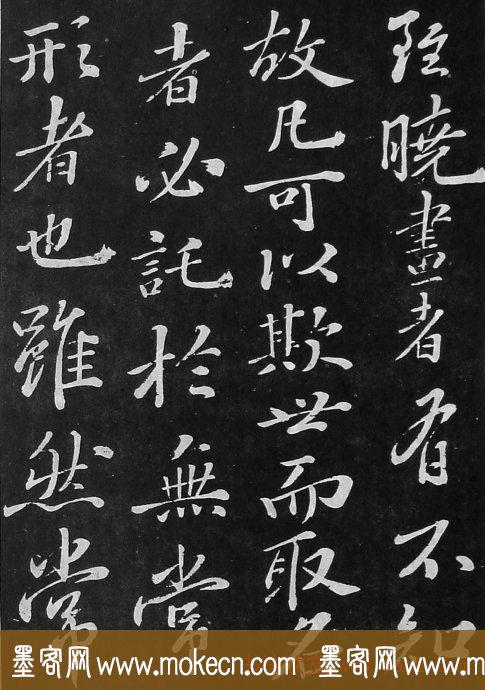 雖曉畫者有不知
故凡可以欺世而取名
者必託於無常
形者也雖然常
墨客网 www.mokecn.com 墨客网 www.mokecn.com